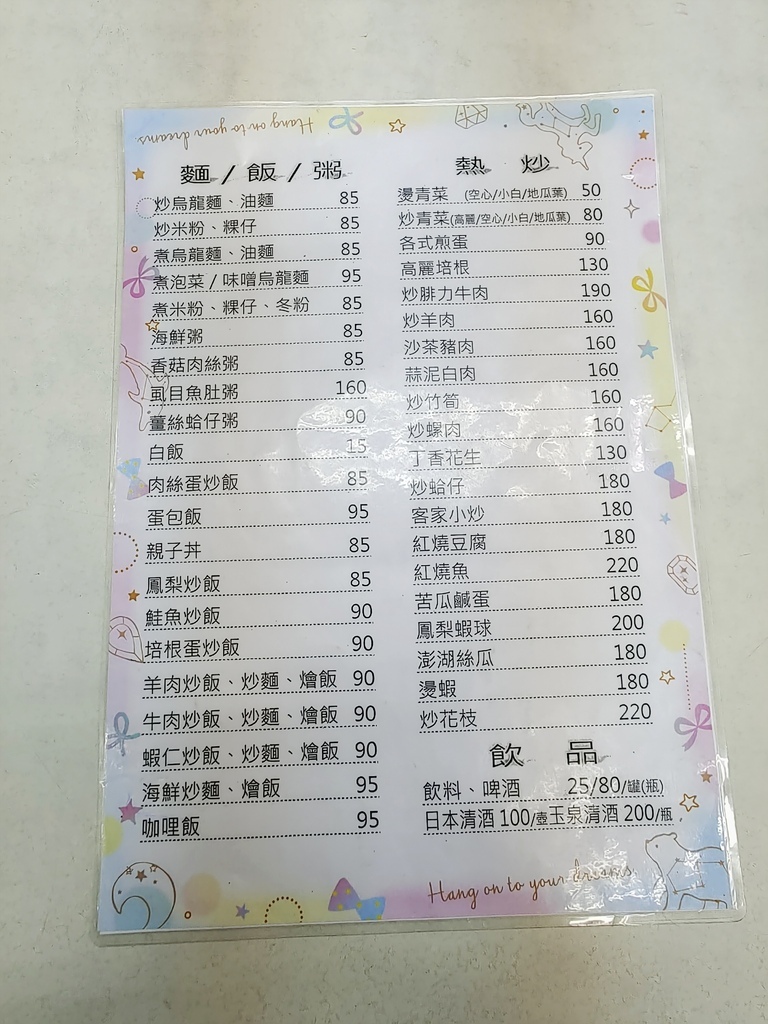 Hang on to your dreams
麵 / 飯 / 粥
炒烏龍麵、油麵 85
炒米粉、粿仔 85
煮烏龍麵、油麵 85
煮泡菜 / 味噌烏龍麵 95
煮米粉、粿仔、冬粉 85
海鮮粥 85
香菇肉絲粥 85
虱目魚肚粥 160
薑絲蛤仔粥 90
白飯 15
肉絲蛋炒飯 85
蛋包飯 95
親子丼 85
鳳梨炒飯 85
鮭魚炒飯 90
培根蛋炒飯 90
羊肉炒飯、炒麵、燴飯 90
牛肉炒飯、炒麵、燴飯 90
蝦仁炒飯、炒麵、燴飯 90
海鮮炒麵、燴飯 95
咖哩飯 95
熱 炒
燙青菜 (空心/小白/地瓜葉) 50
炒青菜(高麗/空心/小白/地瓜葉) 80
各式煎蛋 90
高麗培根 130
炒腓力牛肉 190
炒羊肉 160
沙茶豬肉 160
蒜泥白肉 160
炒竹筍 160
炒螺肉 160
丁香花生 130
炒蛤仔 180
客家小炒 180
紅燒豆腐 180
紅燒魚 220
苦瓜鹹蛋 180
鳳梨蝦球 200
澎湖絲瓜 180
燙蝦 180
炒花枝 220
飲 品
飲料、啤酒 25/80/罐(瓶)
日本清酒 100/壺玉泉清酒 200/瓶
Hang on to your dreams